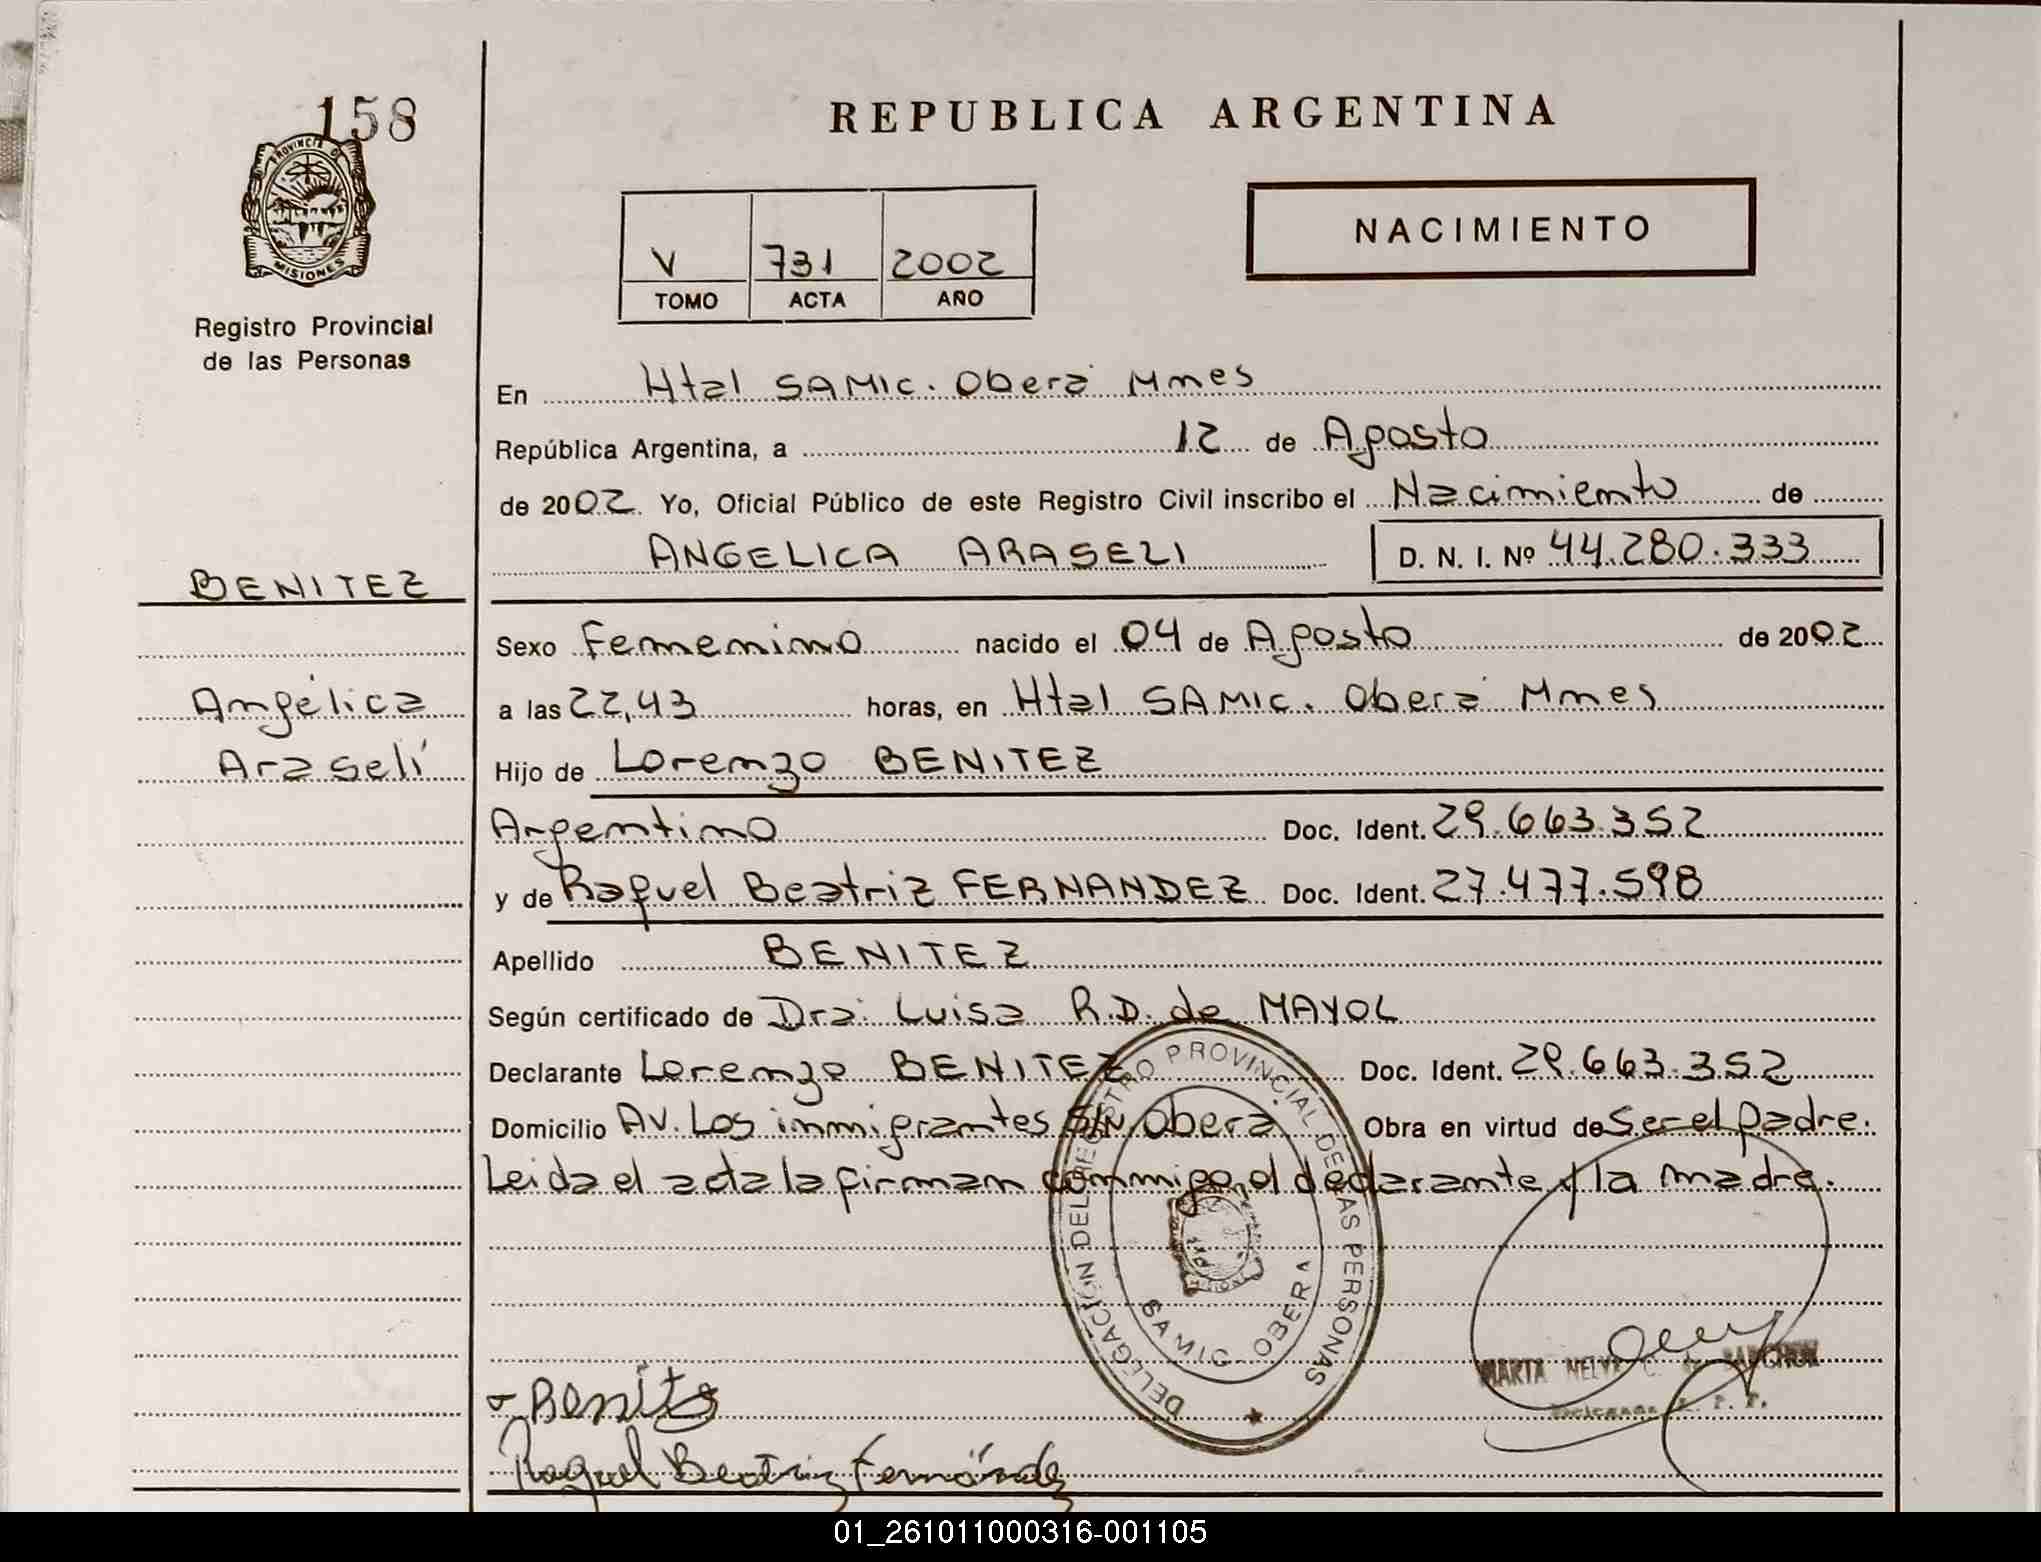 158
PROVINCIA DE
MISIONES
Registro Provincial
de las Personas
REPUBLICA ARGENTINA
V 731 2002
TOMO ACTA AÑO
NACIMIENTO
En Htal SAMIC. Oberá Mnes
República Argentina, a 12 de Agosto
de 2002 Yo, Oficial Público de este Registro Civil inscribo el Nacimiento de
ANGELICA ARASELI D. N. I. Nº 44.280.333
BENITEZ
Angélica
Araselí
Sexo Femenino nacido el 04 de Agosto de 2002
a las 22,43 horas, en Htal SAMIC. Oberá Mnes
Hijo de Lorenzo BENITEZ
Argentino Doc. Ident. 29.663.352
y de Raquel Beatriz FERNANDEZ Doc. Ident. 27.477.598
Apellido BENITEZ
Según certificado de Dra. Luisa R.D. de MAYOL
Declarante Lorenzo BENITEZ Doc. Ident. 29.663.352
Domicilio Av. Los inmigrantes S/N Oberá Obra en virtud de Ser el padre.
Leida el acta la firman conmigo, el declarante y la madre.
DELEGACIÓN DEL REGISTRO PROVINCIAL DE LAS PERSONAS
SAMIC - OBERA
MARTA
Benite
Raquel Beatriz Fernández
01_261011000316-001105